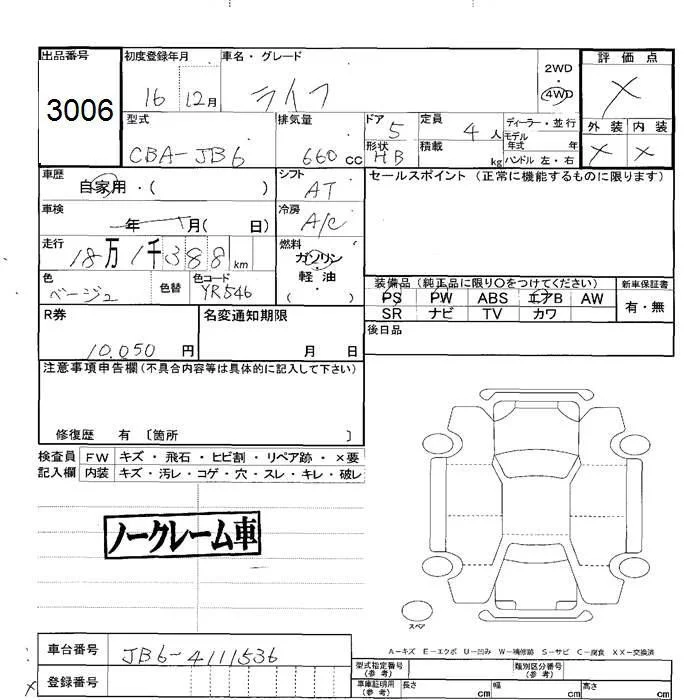 出品番号
3006
初度登録年月
16 12月
車名・グレード
ライフ
2WD
4WD
評価点
X
外装 内装
X X
型式
CBA-JB6
排気量
660 cc
ドア 5
形状 HB
定員 4 人
積載 kg
ディーラー・並行
モデル
年式 年
ハンドル 左・右
車歴
自家用・( )
シフト
AT
セールスポイント (正常に機能するものに限ります)
車検
年 月( 日)
冷房
A/C
走行
18万1千388 km
燃料
ガソリン
軽油
( ・ )
色
ベージュ
色替
色コード
YR546
装備品 (純正品に限り○をつけてください)
新車保証書
PS PW ABS エアB AW
SR ナビ TV カワ
有・無
R券
10,050 円
名変通知期限
月 日
後日品
注意事項申告欄(不具合内容等は具体的に記入して下さい)
修復歴 有 〔箇所 〕
検査員 FW キズ・飛石・ヒビ割・リペア跡・×要
記入欄 内装 キズ・汚レ・コゲ・穴・スレ・キレ・破レ
ノークレーム車
スペア
A-キズ E-エクボ U-凹み W-補修跡 S-サビ C-腐食 XX-交換済
車台番号
JB6-4111536
登録番号
型式指定番号
(参考)
類別区分番号
(参考)
車庫証明用
(参考)
長さ cm 幅 cm 高さ cm